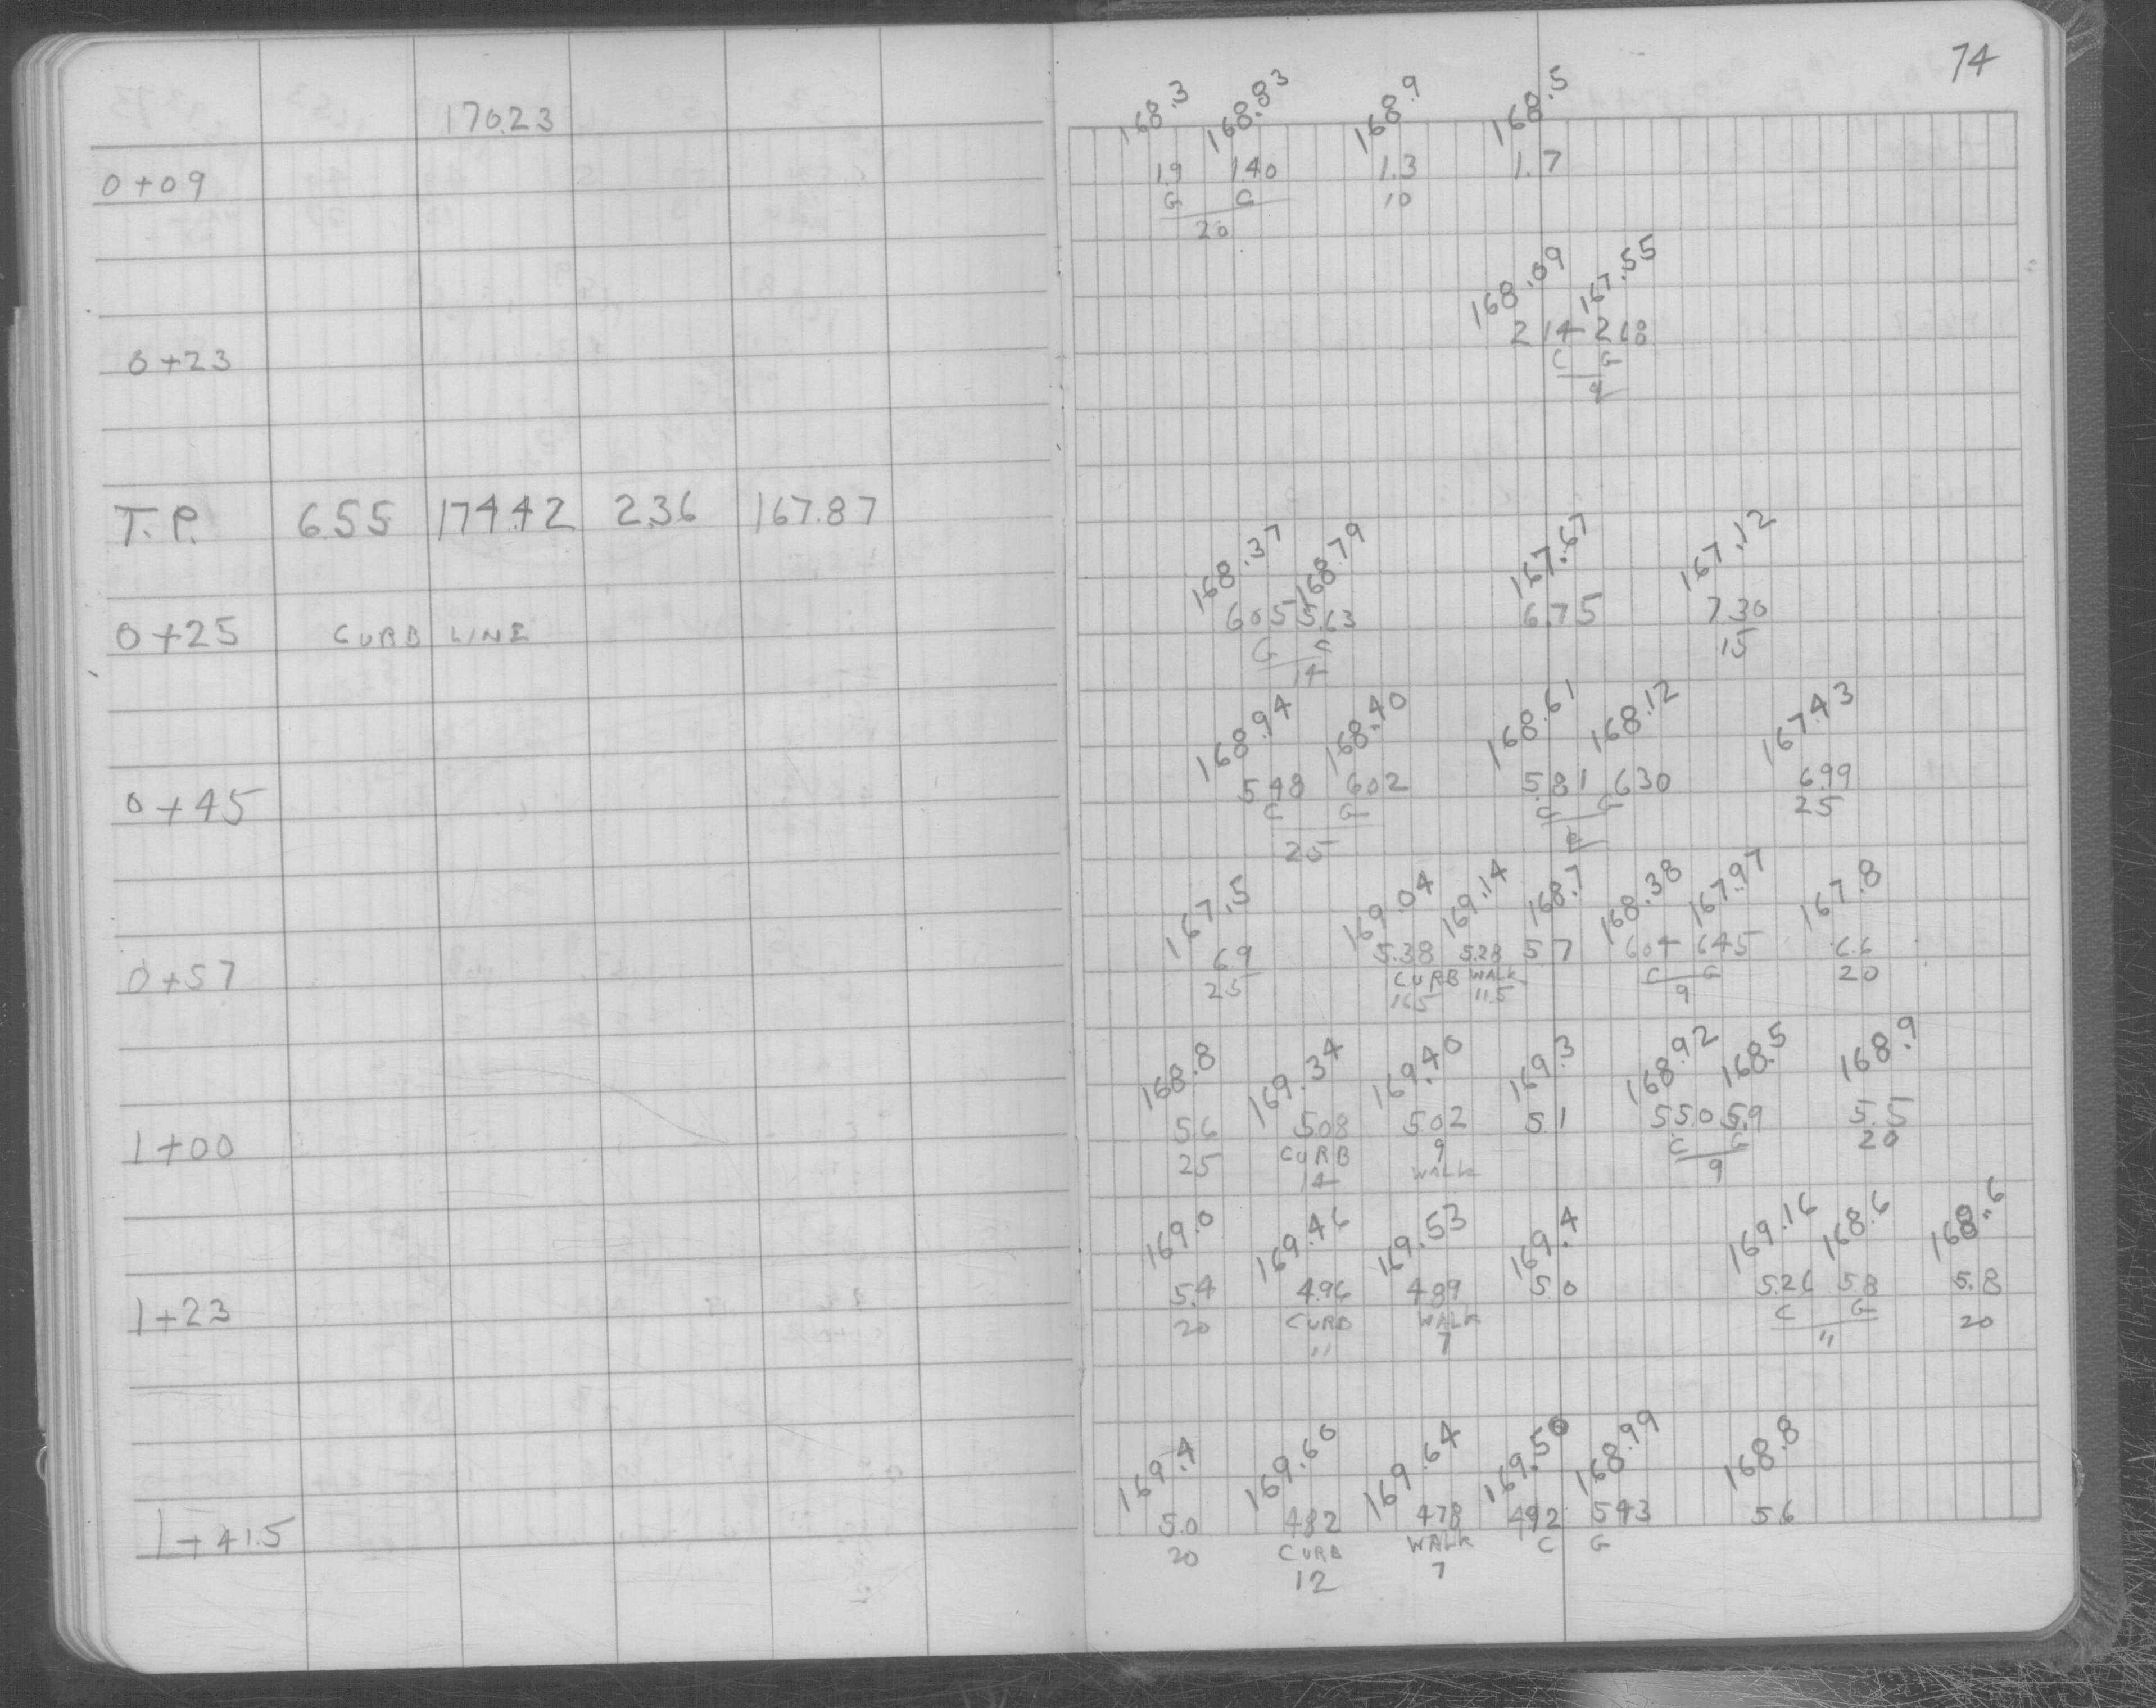 74
170.23
168.3 168.83 168.9 168.5
0+09 1.9 1.40 1.3 1.7
G C 10
20
168.09 167.55
0+23 2.14 2.68
C G
9
T.P. 6.55 174.42 2.36 167.87
168.37 168.79 167.67 167.12
0+25 CURB LINE 6.05 5.63 6.75 7.30
G C 15
14
168.94 168.40 168.61 168.12 167.43
0+45 5.48 6.02 5.81 6.30 6.99
C G C G 25
25
167.5 169.04 169.14 168.7 168.38 167.97 167.8
0+57 6.9 5.38 5.28 5.7 6.04 6.45 6.6
25 CURB WALK C G 20
16.5 11.5 9
168.8 169.34 169.40 169.3 168.92 168.5 168.9
1+00 5.6 5.08 5.02 5.1 5.50 5.9 5.5
25 CURB 9 C G 20
14 WALK 9
169.0 169.46 169.53 169.4 169.16 168.6 168.6
1+23 5.4 4.96 4.89 5.0 5.26 5.8 5.8
20 CURB WALK C G 20
11 7 11
169.4 169.60 169.64 169.50 168.99 168.8
1+41.5 5.0 4.82 4.78 4.92 5.43 5.6
20 CURB WALK C G
12 7